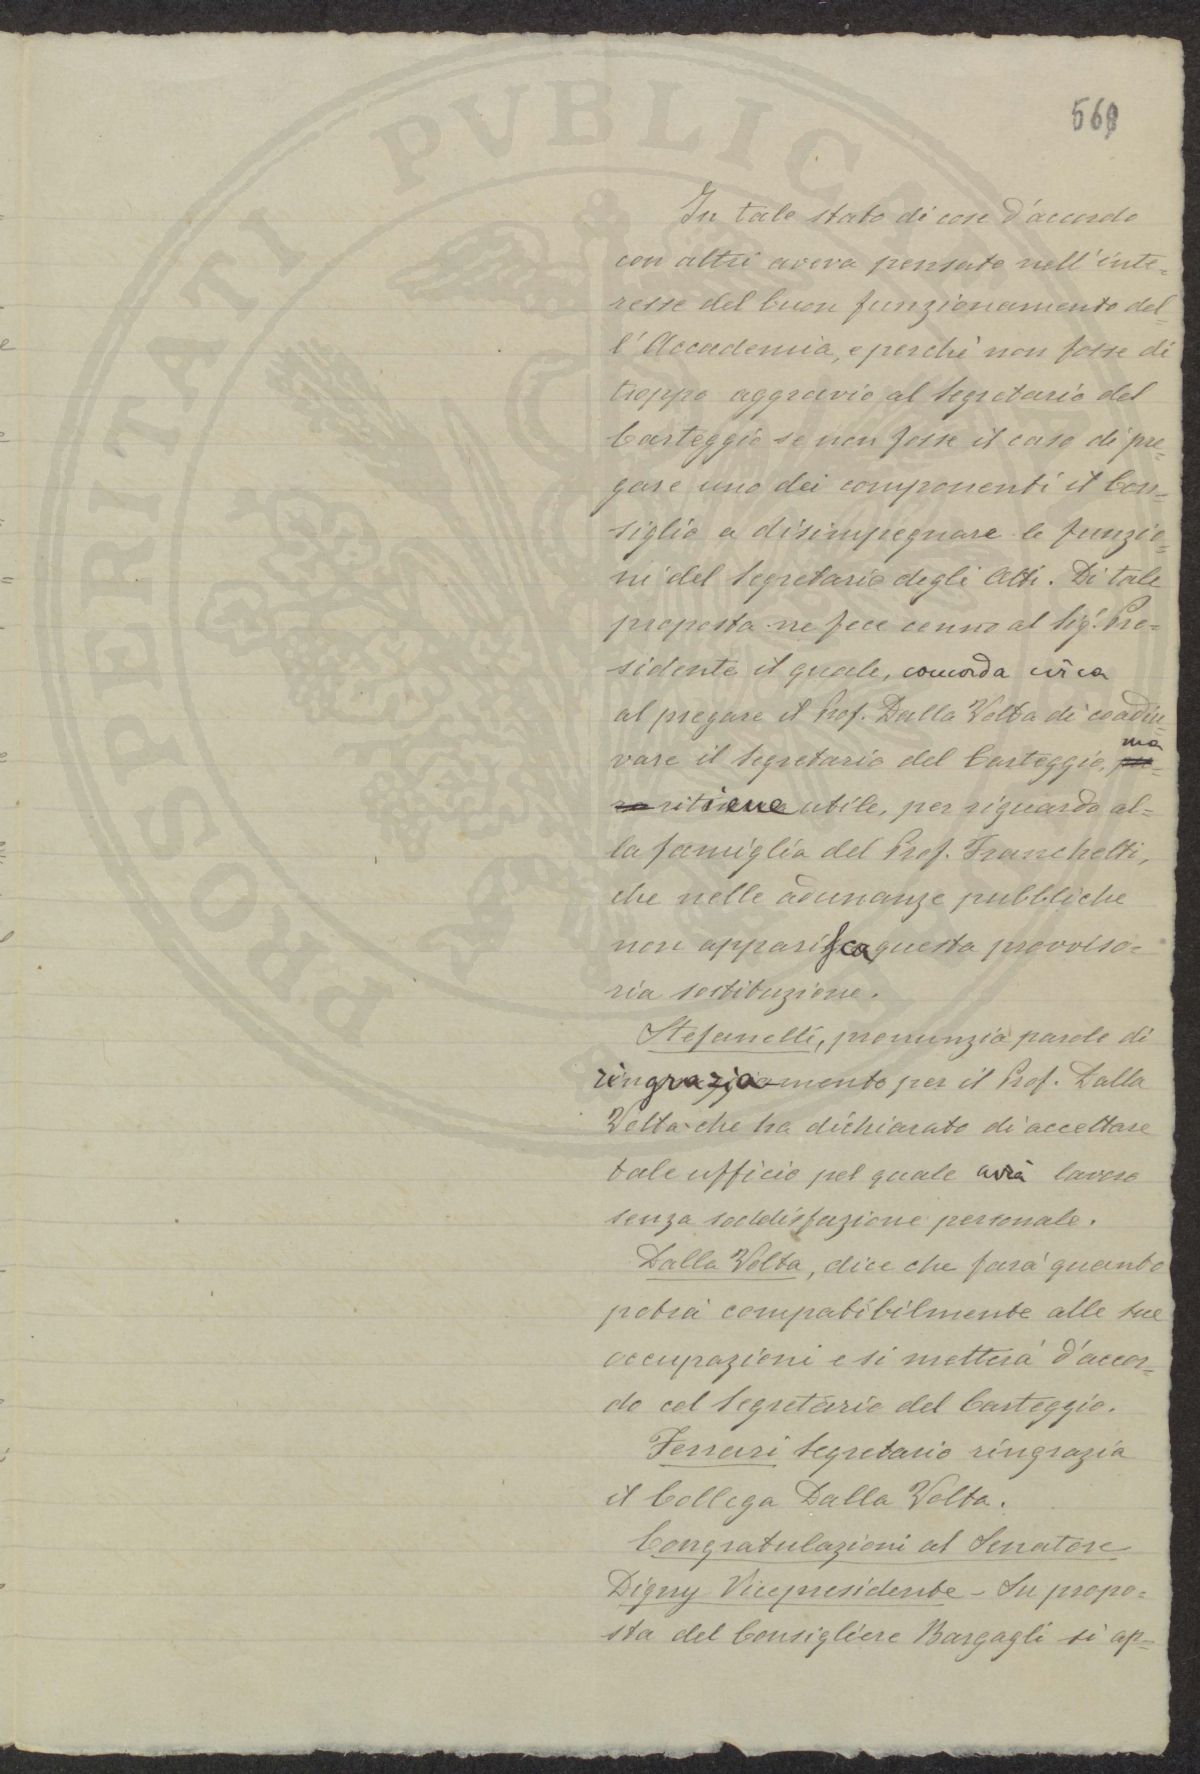 568
In tale stato di cose d'accordo
con altri aveva pensato nell'inte=
resse del buon funzionamento del=
l'Accademia, e perchè non fosse di
troppo aggravio al Segretario del
Carteggio se non fosse il caso di pre=
gare uno dei componenti il Con=
siglio a disimpegnare le funzio=
ni del Segretario degli Atti. Di tale
proposta ne fece cenno al Sig. Pre=
sidente il quale, concorda circa
al pregare il Prof. Dalla Volta di coadiu=
vare il Segretario del Carteggio, ma
ritiene utile, per riguardo al=
la famiglia del Prof. Franchetti,
che nelle adunanze pubbliche
non apparisca questa provviso=
ria sostituzione.
Stefanelli, pronunzia parole di
ringraziamento per il Prof. Dalla
Volta che ha dichiarato di accettare
tale ufficio pel quale avrà lavoro
senza soddisfazione personale.
Dalla Volta, dice che farà quanto
potrà compatibilmente alle sue
occupazioni e si metterà d'accor=
do col Segretario del Carteggio.
Ferrari Segretario ringrazia
il Collega Dalla Volta.
Congratulazioni al Senatore
Digny Vicepresidente - Su propo=
sta del Consigliere Bargagli si ap=
PROSPERITATI PVBLICAE